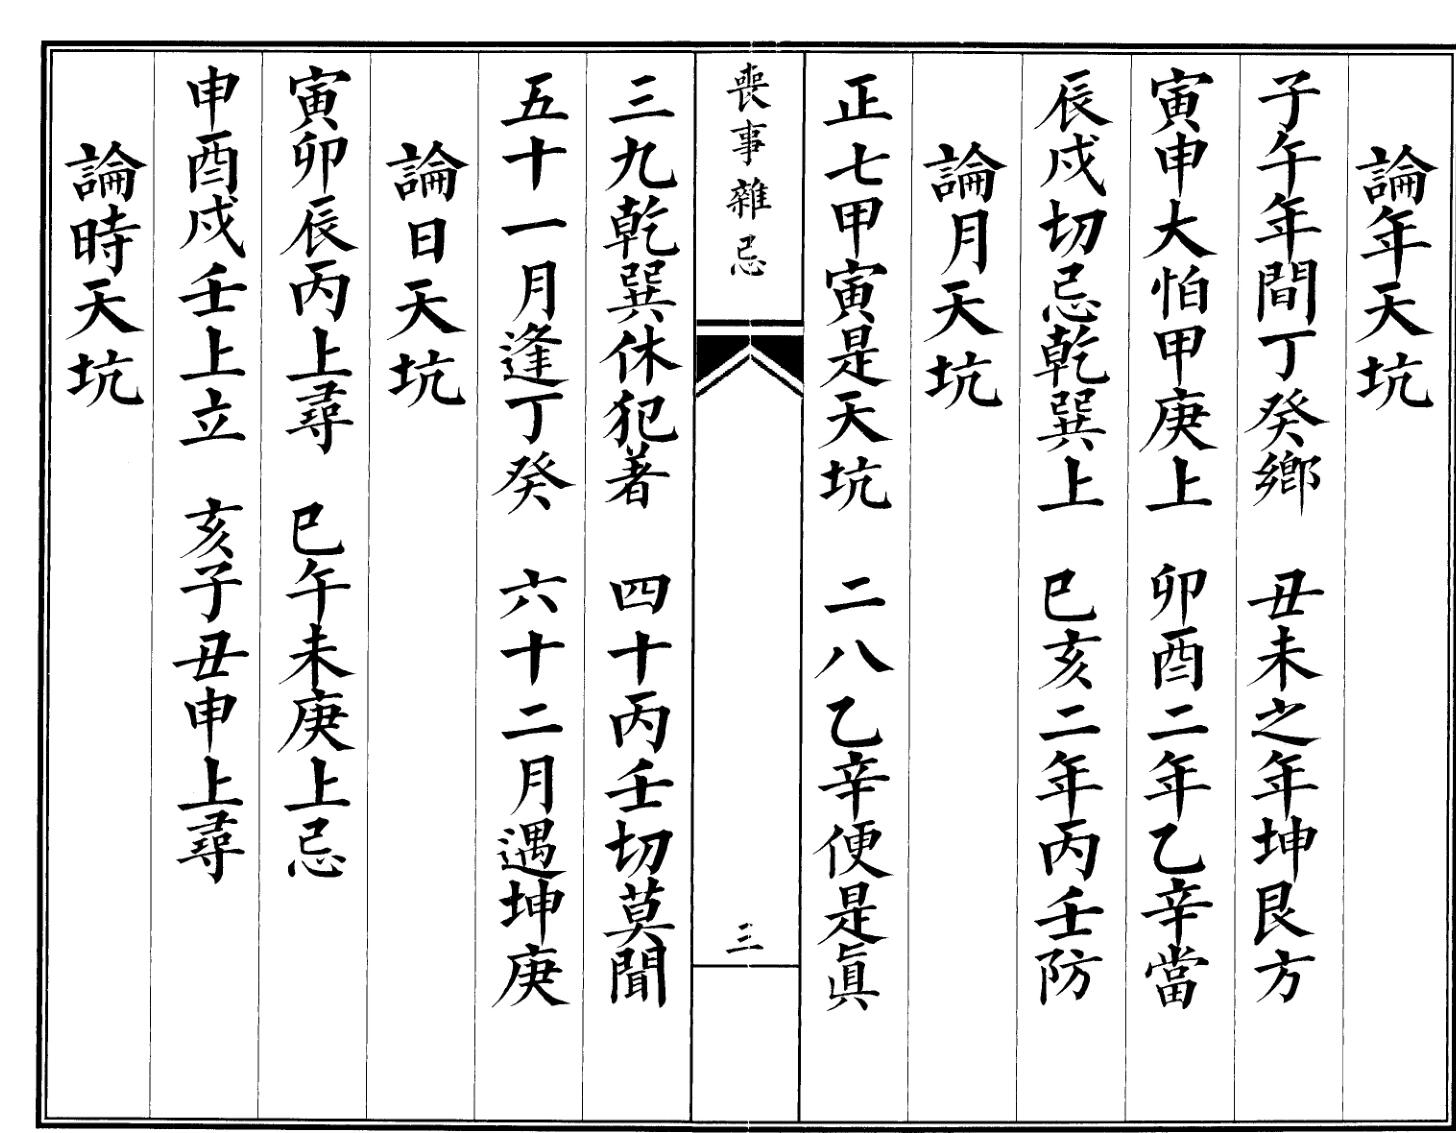 論年天坑
子午年間丁癸鄉　丑未之年坤艮方
寅申大怕甲庚上　卯酉二年乙辛當
辰戍切忌乾巽上　巳亥二年丙壬防
論月天坑
正七甲寅是天坑　二八乙辛便是眞
喪事雜忌
三
三九乾巽休犯著　四十丙壬切莫聞
五十一月逢丁癸　六十二月遇坤庚
論日天坑
寅卯辰丙上尋　巳午未庚上忌
申酉戍壬上立　亥子丑申上尋
論時天坑